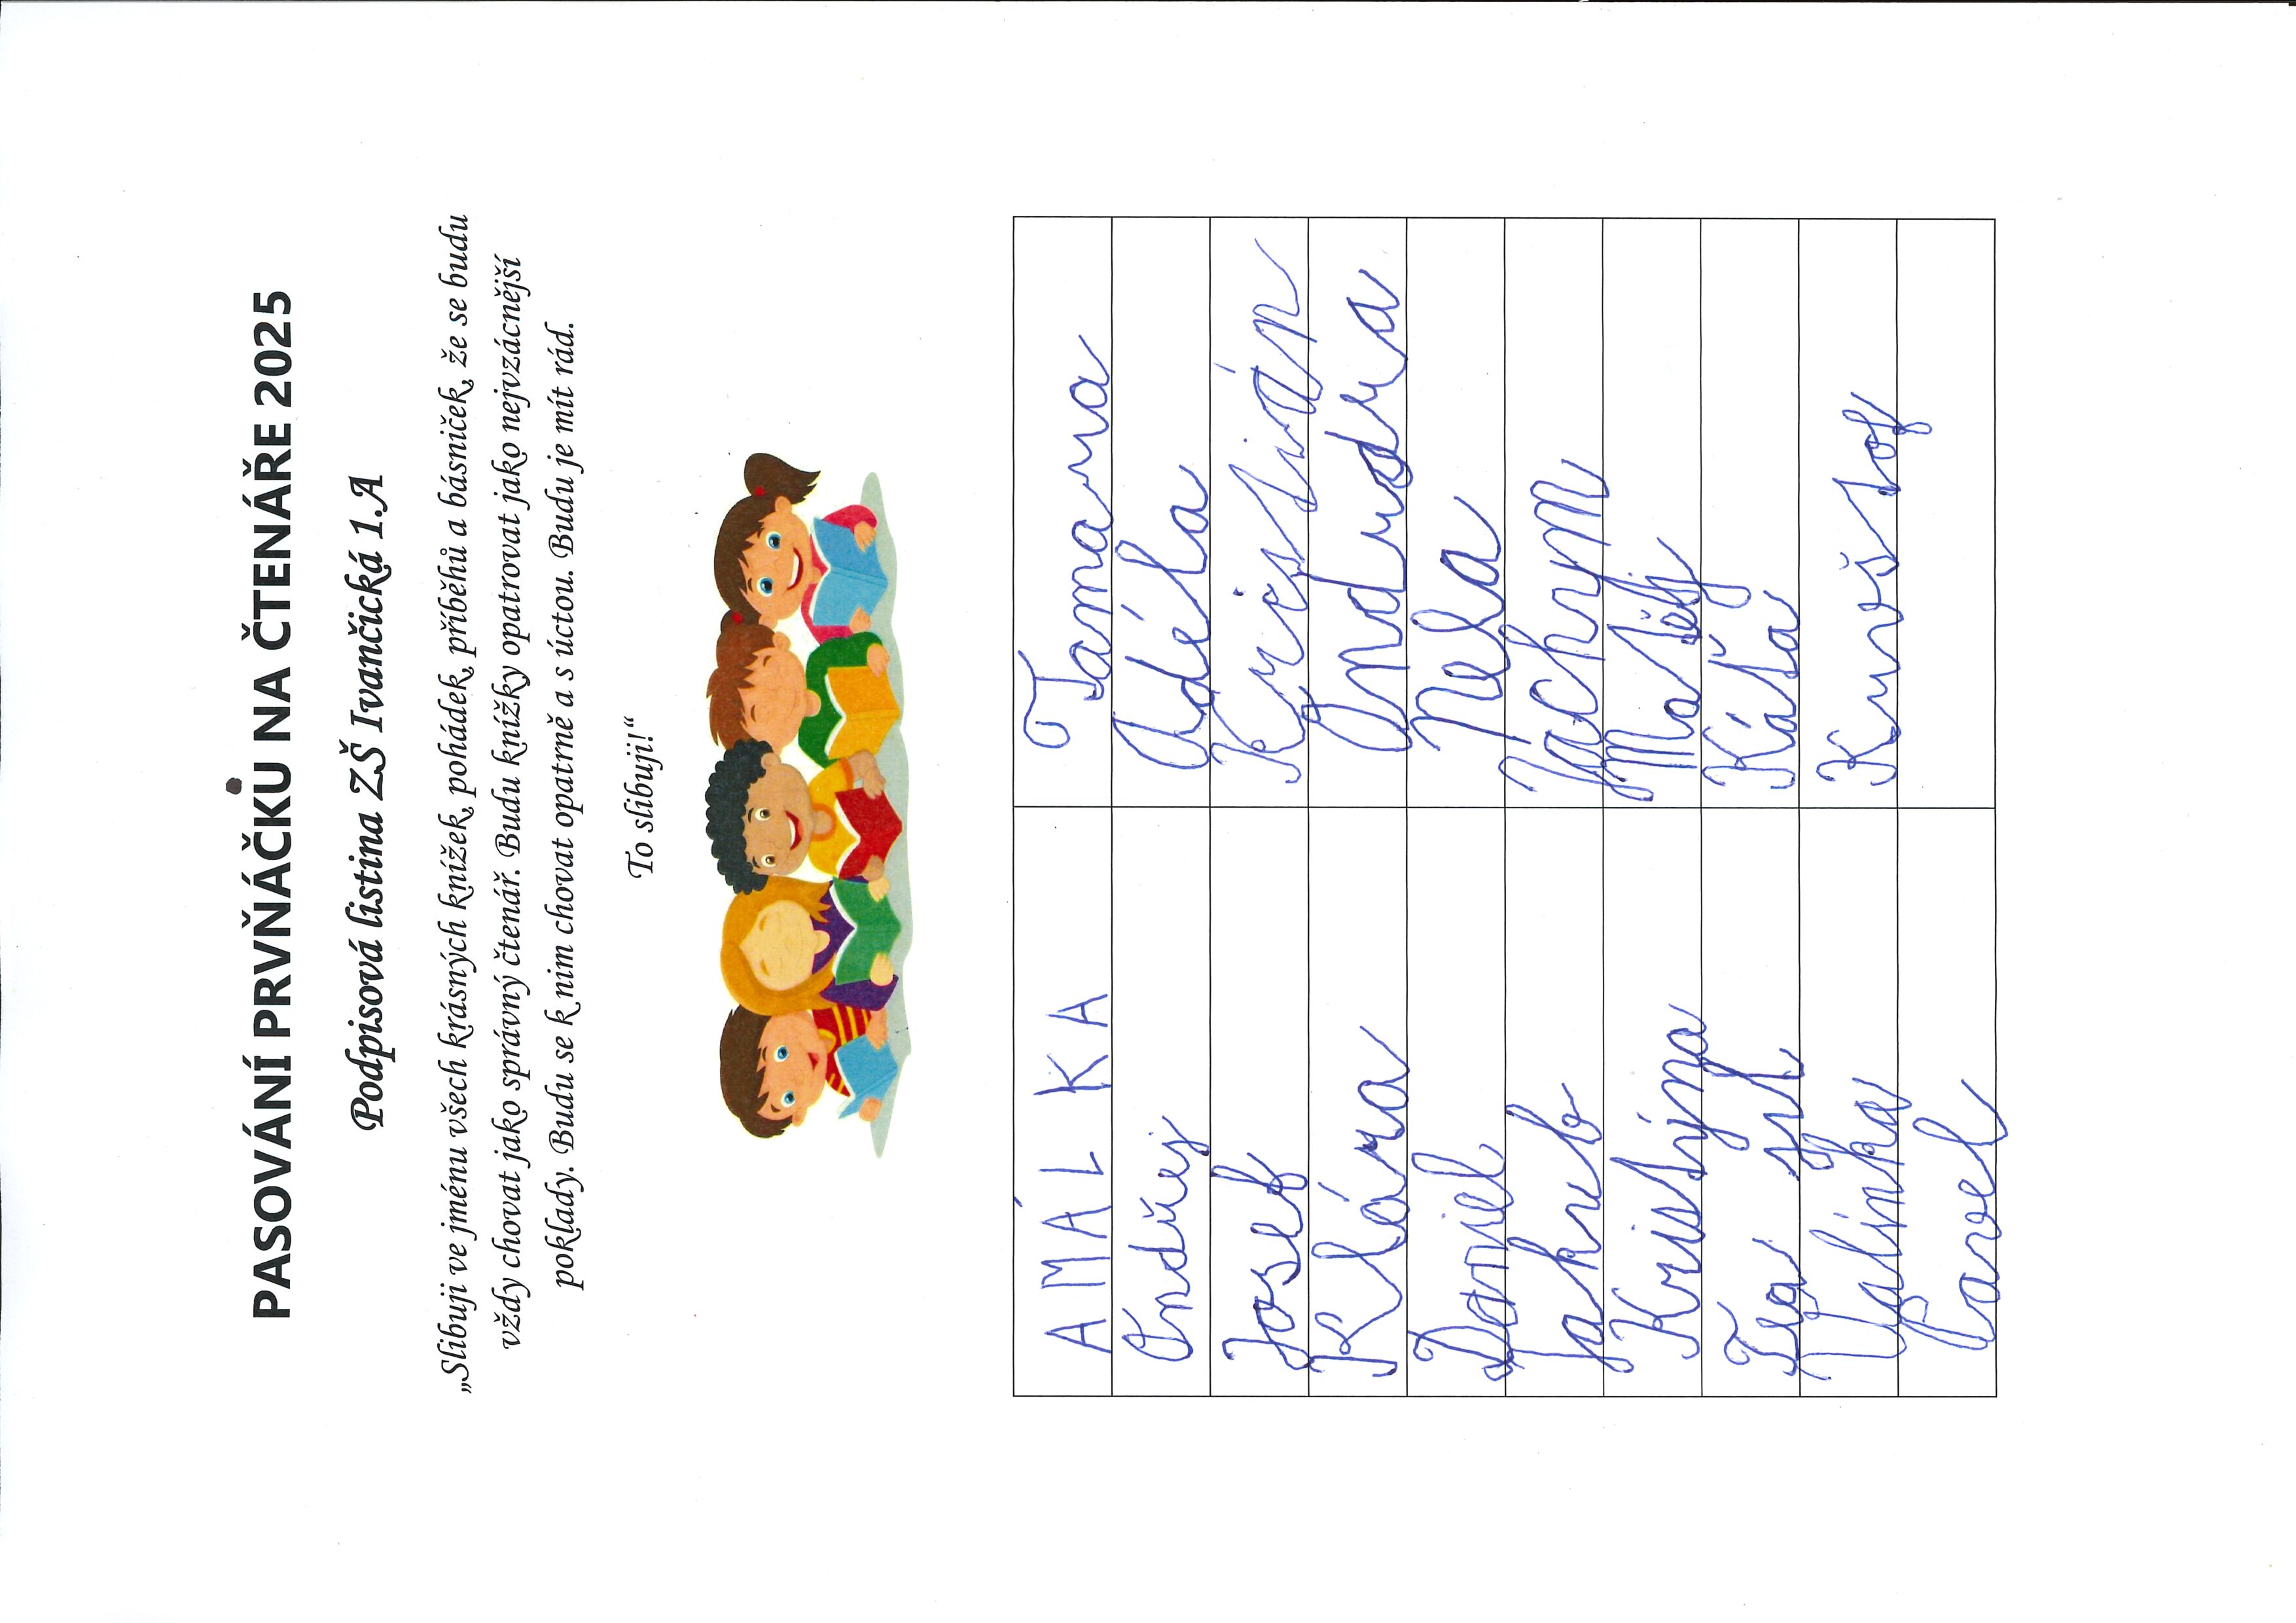 PASOVÁNÍ PRVŇÁČKŮ NA ČTENÁŘE 2025
Podpisová listina ZŠ Ivančická 1.A
„Slibuji ve jménu všech krásných knížek, pohádek, příběhů a básniček, že se budu
vždy chovat jako správný čtenář. Budu knížky opatrovat jako nejvzácnější
poklady. Budu se k nim chovat opatrně a s úctou. Budu je mít rád.
To slibuji!“
AMÁLKA Tamara
Ondřej Adéla
Josef Kristián
Klára Ondra
Daniel Nela
Jakub Jáchym
Kristýna Matěj
Káťa
Kryštof
Pavel